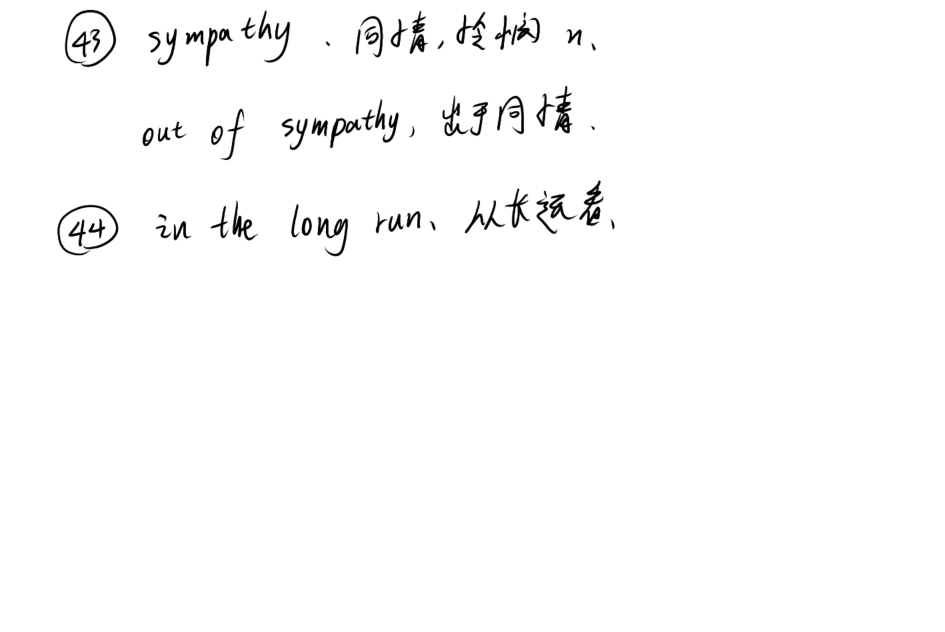 ㊸ sympathy、同情,怜悯 n、
out of sympathy, 出于同情.
㊹ in the long run、从长远看、